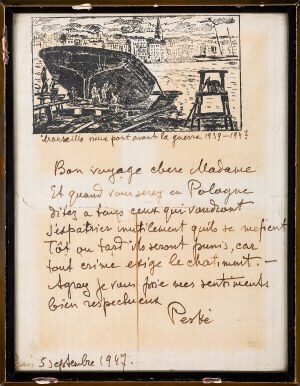 Marseille vieux port avant la guerre 1939-1947
Bon voyage chere Madame
Et quand vous serez en Pologne
dites a tous ceux qui voudront
s'expatrier inutilement qu'ils se mefient
Tôt ou tard ils seront punis, car
tout crime exige le chatiment. —
Agrez je vous prie mes sentiments
bien respectueux
5 septembre 1947.